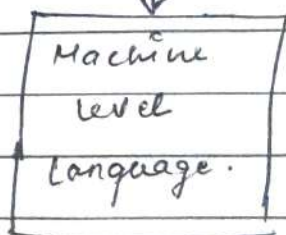 Machine
level
language.